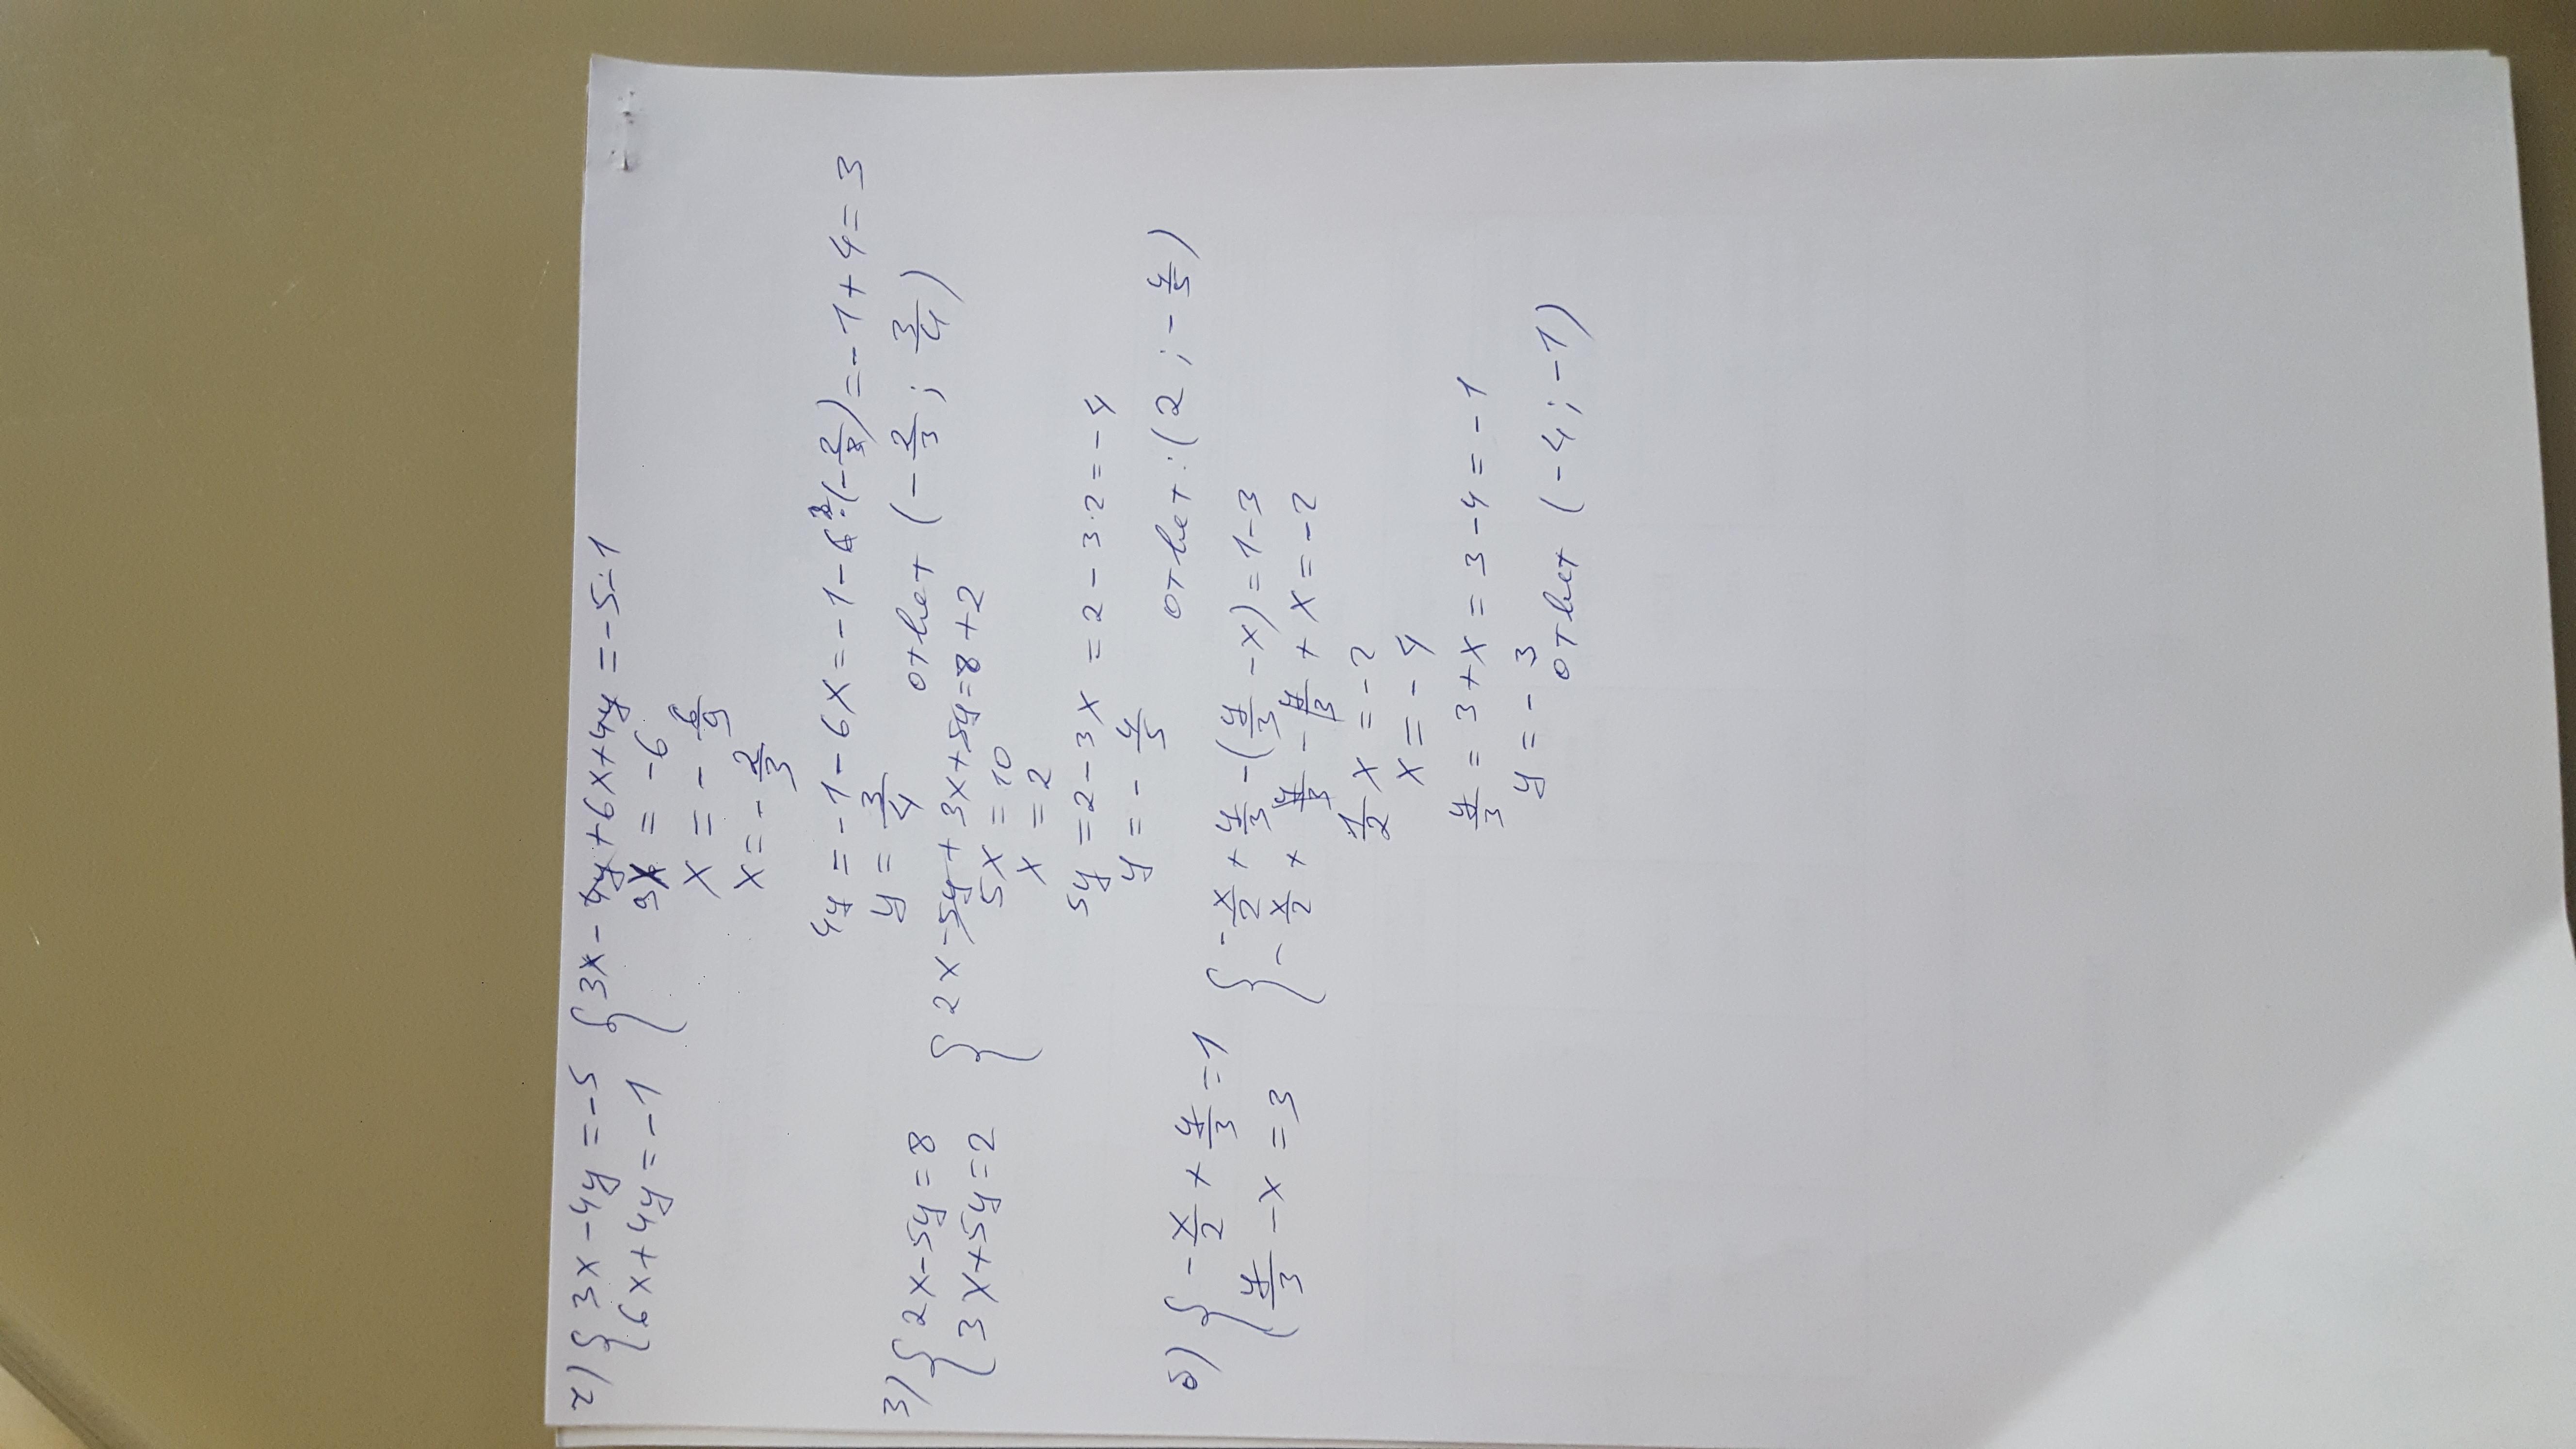 2) { 3x-4y=-5 { 3x-4y+6x+4y=-5-1
6x+4y=-1 9x=-6
x=-6/9
x=-2/3
4y=-1-6x=-1-6²·(-2/3)=-1+4=3
y=3/4 ответ (-2/3; 3/4)
3) { 2x-5y=8 { 2x-5y+3x+5y=8+2
3x+5y=2 5x=10
x=2
5y=2-3x=2-3·2=-4
y=-4/5
ответ: (2; -4/5)
б) { -x/2+y/3=1 { -x/2+y/3-(y/3-x)=1-3
y/3-x=3 -x/2+y/3-y/3+x=-2
1/2x=-2
x=-4
y/3=3+x=3-4=-1
y=-3
ответ (-4; -1)